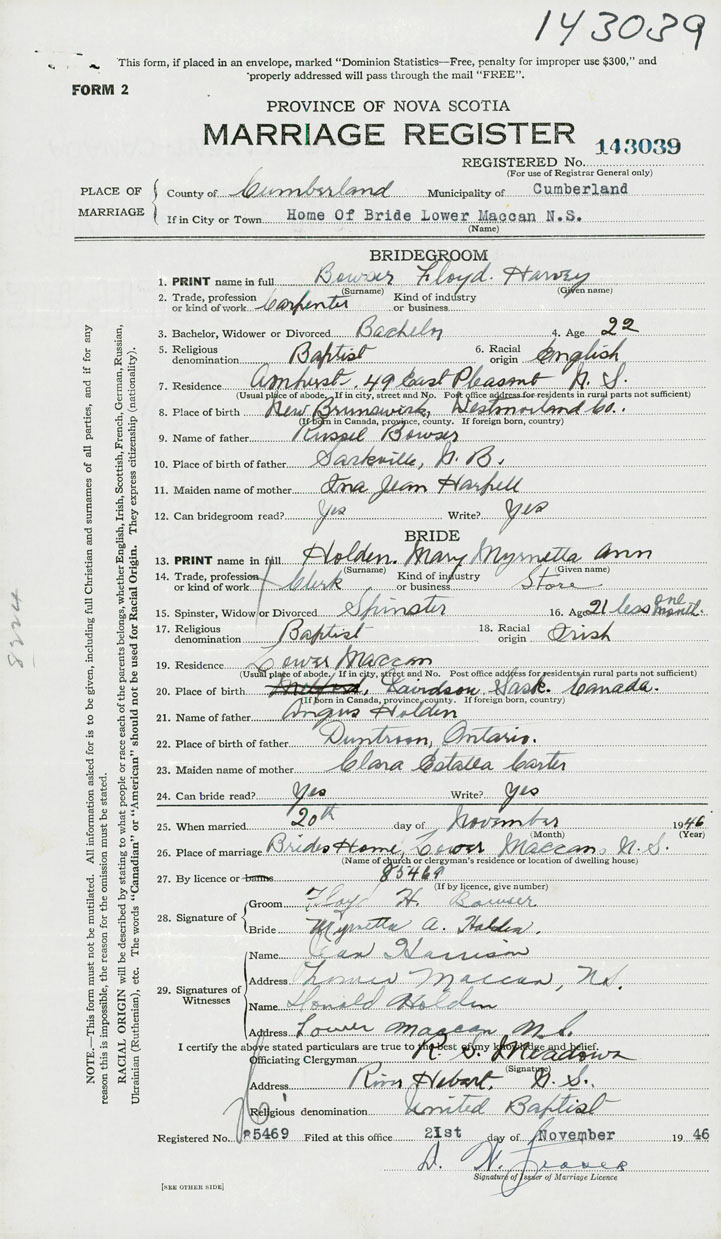 143039
This form, if placed in an envelope, marked "Dominion Statistics—Free, penalty for improper use $300," and
properly addressed will pass through the mail "FREE".
FORM 2
PROVINCE OF NOVA SCOTIA
MARRIAGE REGISTER
143039
REGISTERED No.
(For use of Registrar General only)
PLACE OF MARRIAGE
County of Cumberland Municipality of Cumberland
If in City or Town Home Of Bride Lower Maccan N.S.
(Name)
BRIDEGROOM
1. PRINT name in full Bowser Floyd. Harvey
(Surname) (Given name)
2. Trade, profession or kind of work Carpenter Kind of industry or business
3. Bachelor, Widower or Divorced Bachelor 4. Age 22
5. Religious denomination Baptist 6. Racial origin English
7. Residence Amherst. 49 East Pleasant N. S.
(Usual place of abode. If in city, street and No. Post office address for residents in rural parts not sufficient)
8. Place of birth New Brunswick, Westmorland Co..
(If born in Canada, province, county. If foreign born, country)
9. Name of father Russel Bowser
10. Place of birth of father Sackville, N. B.
11. Maiden name of mother Ina Jean Harpell
12. Can bridegroom read? Yes Write? Yes
BRIDE
13. PRINT name in full Holden. Mary Myrnetta Ann
(Surname) (Given name)
14. Trade, profession or kind of work Clerk Kind of industry or business Store
15. Spinster, Widow or Divorced Spinster 16. Age 21 less one month.
17. Religious denomination Baptist 18. Racial origin Irish
19. Residence Lower Maccan
(Usual place of abode. If in city, street and No. Post office address for residents in rural parts not sufficient)
20. Place of birth Sask. Canada.
(If born in Canada, province, county. If foreign born, country)
21. Name of father Angus Holden
22. Place of birth of father Duntroon, Ontario.
23. Maiden name of mother Clara Estalla Carter
24. Can bride read? Yes Write? Yes
25. When married 20th day of November 1946
(Month) (Year)
26. Place of marriage Brides Home, Lower Maccan, N. S.
(Name of church or clergyman's residence or location of dwelling house)
27. By licence or banns 85469
(If by licence, give number)
28. Signature of
Groom Floyd H. Bowser
Bride Myrnetta A. Holden.
29. Signatures of Witnesses
Name Jean Harrison
Address Lower Maccan, N.S.
Name Donald Holden
Address Lower Maccan N.S.
I certify the above stated particulars are true to the best of my knowledge and belief.
Officiating Clergyman R. S. Meadows
(Signature)
Address River Hebert. N. S.
Religious denomination United Baptist
Registered No. 85469 Filed at this office 21st day of November 19 46
Signature of Issuer of Marriage Licence
[SEE OTHER SIDE]
NOTE.—This form must not be mutilated. All information asked for is to be given, including full Christian and surnames of all parties, and if for any
reason this is impossible, the reason for the omission must be stated.
RACIAL ORIGIN will be described by stating to what people or race each of the parents belongs, whether English, Irish, Scottish, French, German, Russian,
Ukrainian (Ruthenian), etc. The words "Canadian" or "American" should not be used for Racial Origin. They express citizenship (nationality).